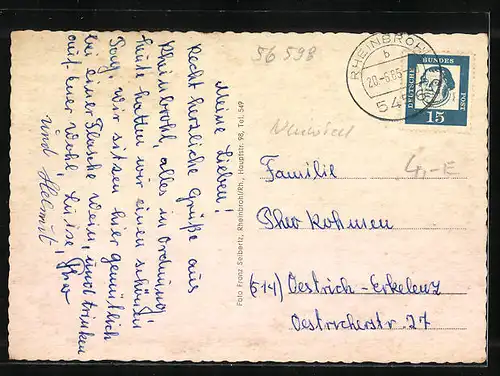 Meine Lieben!
Recht herzliche Grüße aus
Rheinbrohl, alles in Ordnung!
heute hatten wir einen schönen
Tag, wir sitzen hier gemütlich
bei einer Flasche Wein, und trinken
auf Euer Wohl!
und Helmut
Foto Franz Seibertz, Rheinbrohl/Rh., Hauptstr. 98, Tel. 549
56 598
RHEINBROHL
b
20.-6.66
545
DEUTSCHE BUNDESPOST
15
4,-E
Familie
Theo Kohnen
(514) Oestrich-Erkelenz
Oestricherstr. 27